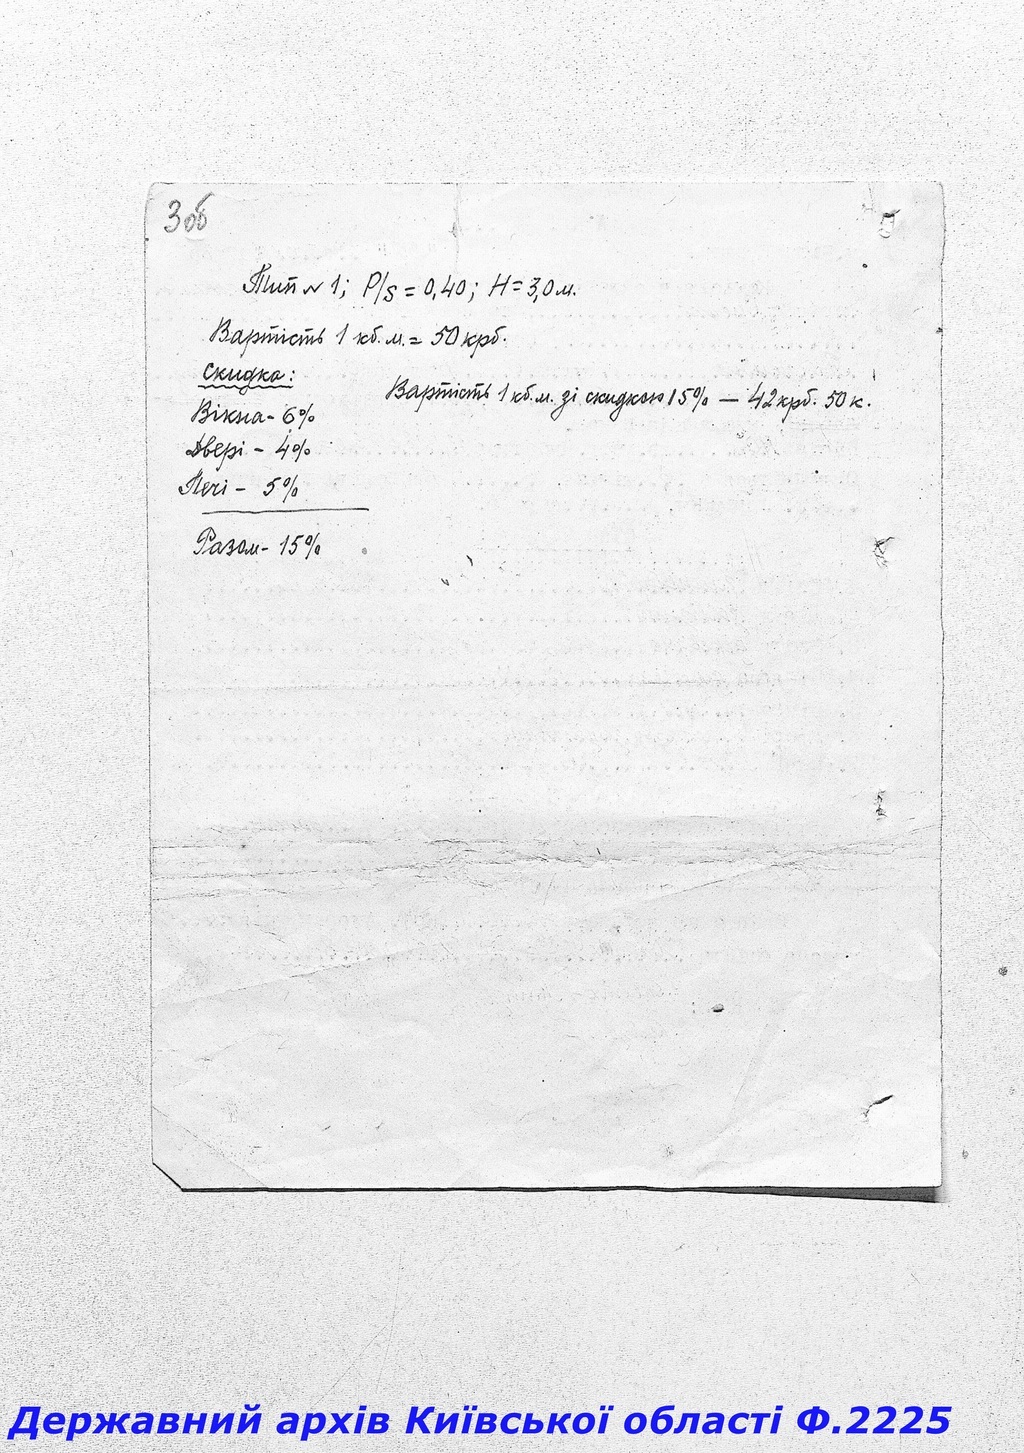 3 об
Тип № 1; P/s = 0,40; H = 3,0 м.
Вартість 1 кб. м. = 50 крб.
Скидка:
Вартість 1 кб. м. зі скидкою 15% — 42 крб. 50 к.
Вікна - 6%
Двері - 4%
Печі - 5%
Разом - 15%
Державний архів Київської області Ф.2225